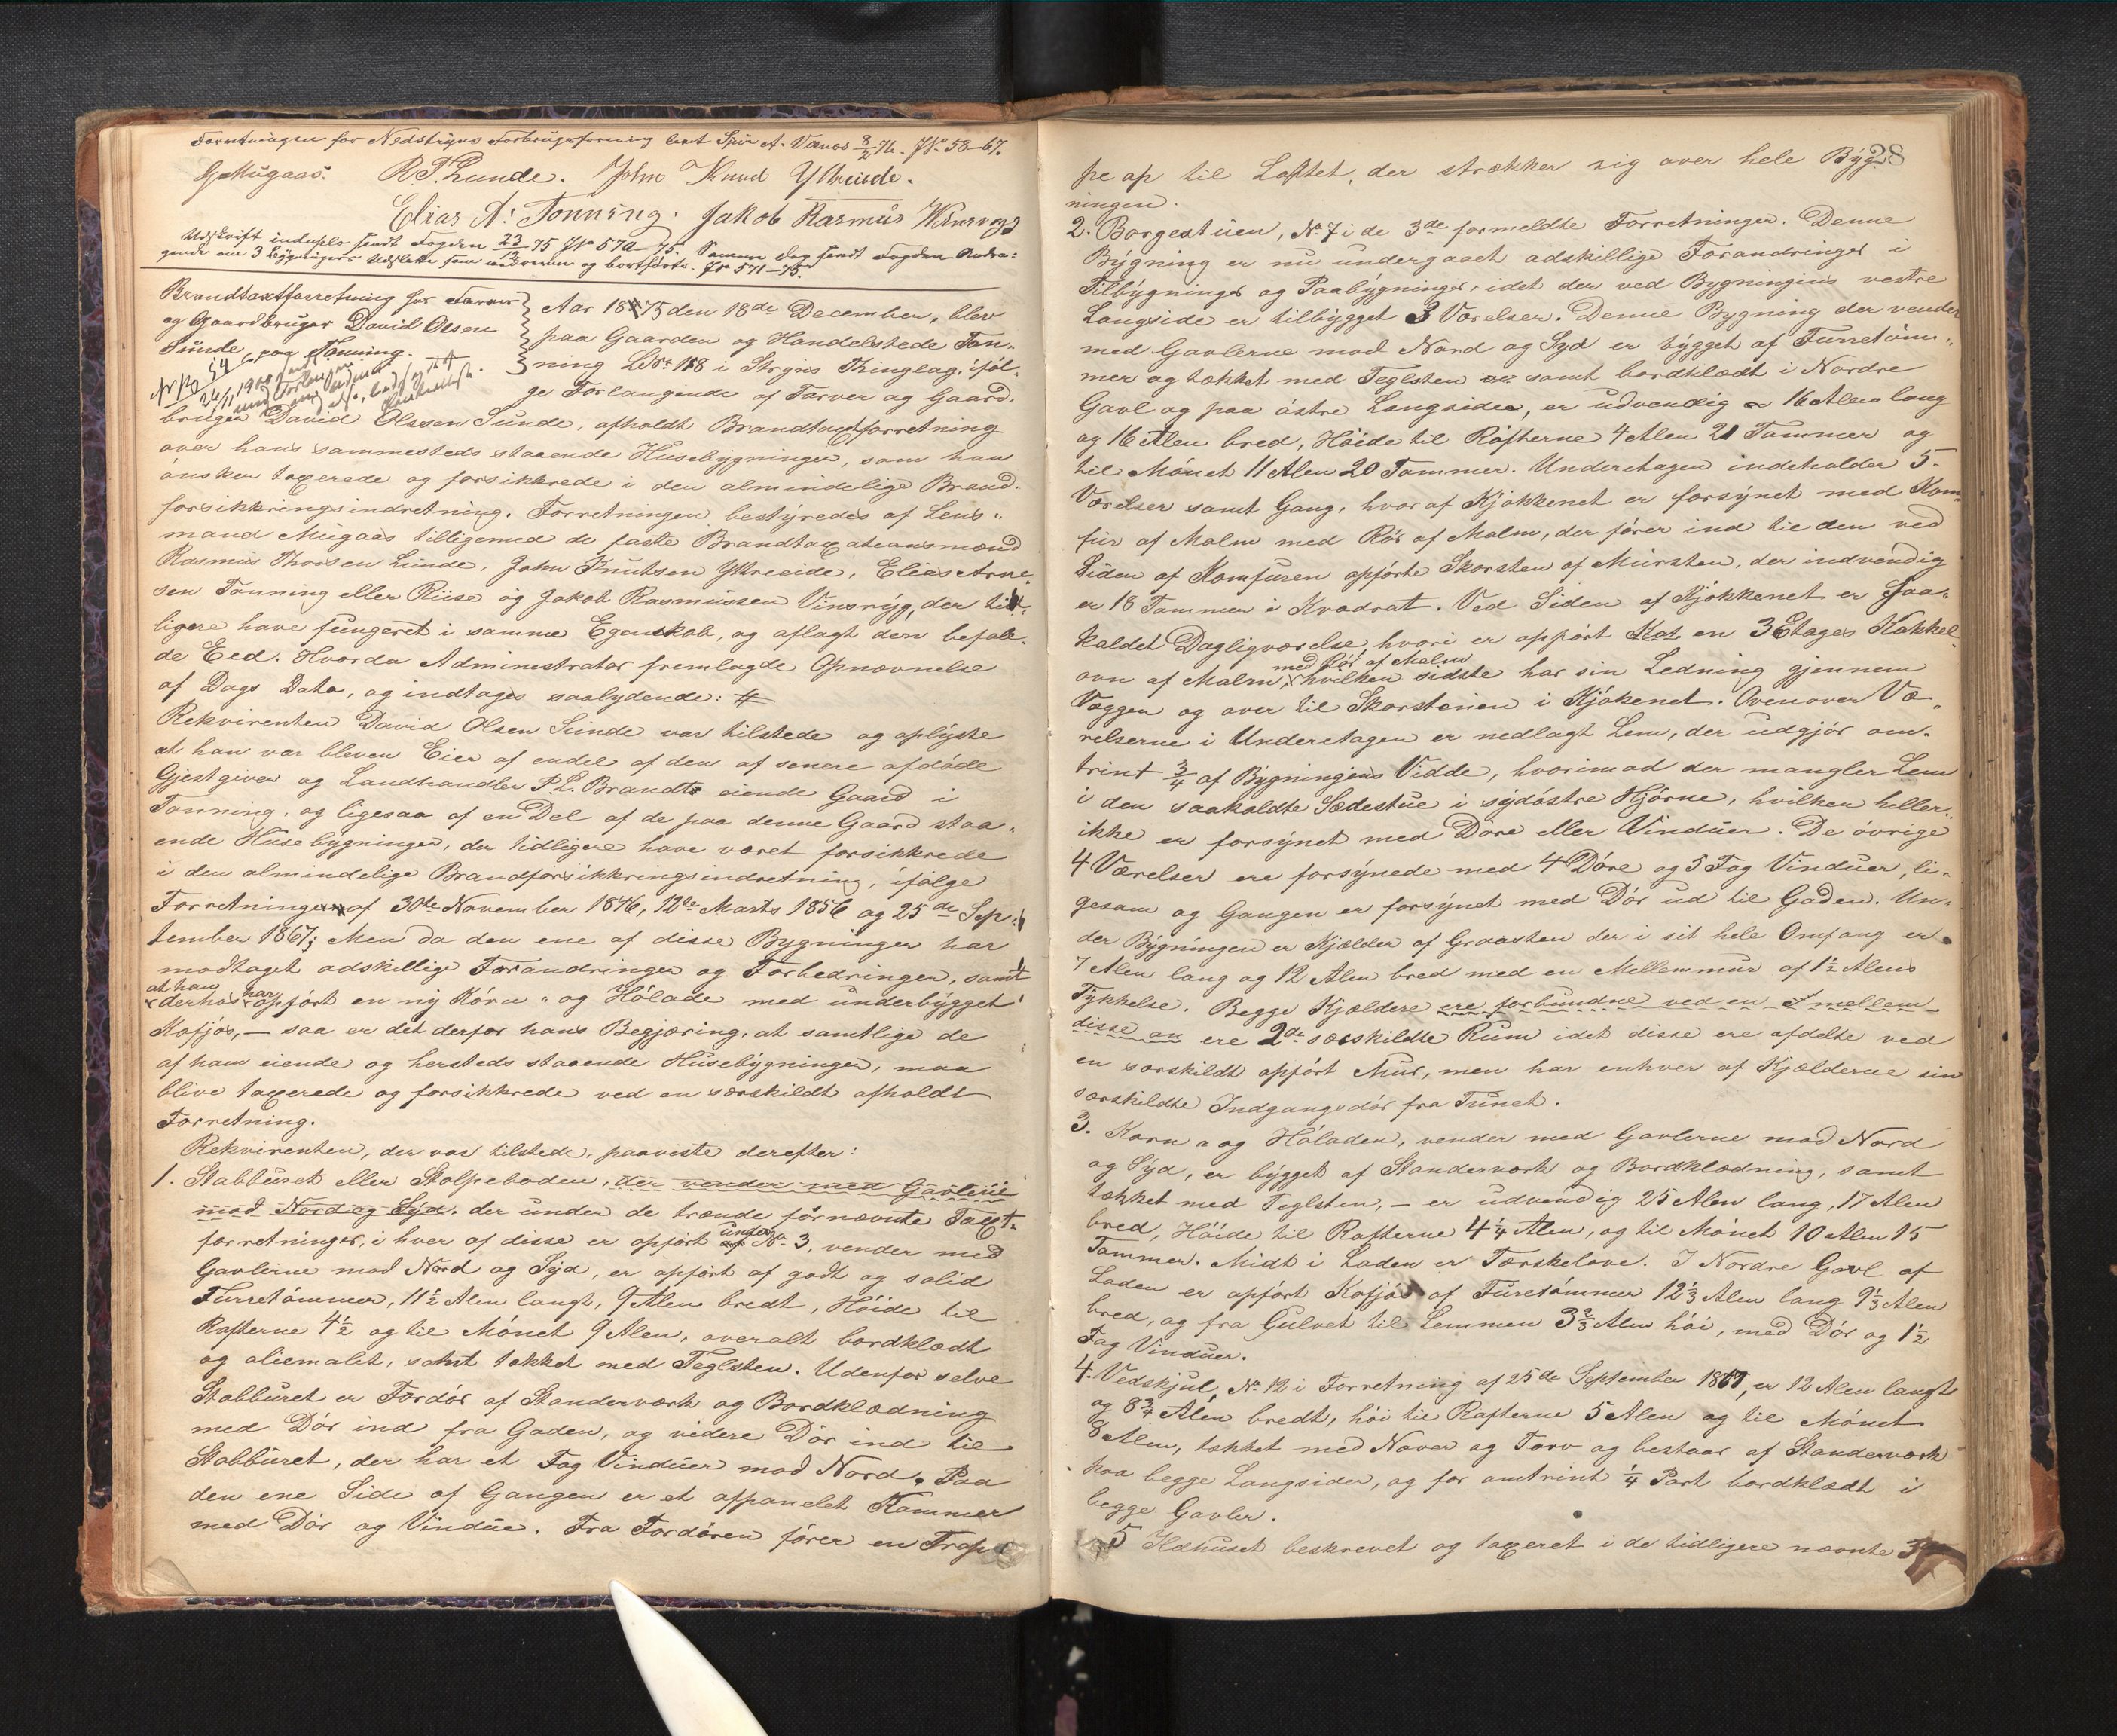 Forretningen for Nedstryns Forbrugsforening sent 8/2 76. J№ 58-67.
GMugaas. R.T. Sunde. John Knud Ytreeide.
Elias A: Tonning. Jakob Rasmus Winsrygg
Udskrift induplo sendt Fogden 23/12 75 J№ 570-75. Samme Dag sendt Fogden Andra-
gende om 3 Bygningers Udslette som og bortførte. J№ 571-75.
Brandtaxtforretning for Farver
og Gaardbruger David Olsen
Sunde paa Tonning.
Aar 1875 den 18de December, blev
paa Gaarden og Handelstedet Ton-
ning LNr 118 i Stryns Thinglag, iføl-
ge Forlangende af Farver og Gaard-
bruger David Olssen Sunde, afholdt Brandtaxtforretning
over hans sammesteds staaende Husebygninger, som han
ønsker taxerede og forsikkrede i den almindelige Brand-
forsikkringsindretning. Forretningen bestyredes af Lens-
mand Mugaas tilligemed de faste Brandtaxationsmænd
Rasmus Thorsen Sunde, John Knutsen Ytreeide, Elias Arne-
sen Tonning eller Riise og Jakob Rasmussen Vinsryg, der tid-
ligere have fungeret i samme Egenskab, og aflagt den befale-
de Eed. Hvorda Administrator fremlagde Opnævnelse
af Dags Dato, og indtages saalydende: #
Rekvirenten David Olsen Sunde var tilstede og oplyste
at han var bleven Eier af endel af den af senere afdøde
Gjestgiver og Landhandler P. L. Brandt eiende Gaard i
Tonning, og ligesaa af en Del af de paa denne Gaard staa-
ende Husebygninger, der tidligere have været forsikkrede
i den almindelige Brandforsikkringsindretning, ifølge
Forretninger af 30te November 1846, 12te Marts 1856 og 25de Sep-
tember 1867; Men da den ene af disse Bygninger har
modtaget adskillige Forandringer og Forbedringer, samt
at han
derhos har opført en ny Korn- og Hølade med underbygget
Kofjøs, — saa er det derfor hans Begjæring, at samtlige de
af ham eiende og hersteds staaende Husebygninger, maa
blive taxerede og forsikkrede ved en særskildt afholdt
Forretning.
Rekvirenten, der var tilstede, paaviste derefter:
1. Stabburet eller Stolpeboden, der vender med Gavlerne
mod Nord og Syd. der under de trende førnævnte Taxt-
forretninger, i hver af disse er opført under № 3, vender med
Gavlerne mod Nord og Syd, er opført af godt og solid
Furretømmer, 11½ Alen langt, 9 Alen bredt, Høide til
Rafterne 4½ og til Mønet 9 Alen, overalt bordklædt
og oliemalet, samt tækket med Teglsten. Udenfor selve
Stabburet er Fordør af Standerværk og Bordklædning
med Dør ind fra Gaden, og videre Dør ind til
Stabburet, der har et Fag Vinduer mod Nord. Paa
den ene Side af Gangen er et afpanelet Kammer
med Dør og Vindue. Fra Fordøren fører en Trap-
28
pe op til Loftet, der strækker sig over hele Byg-
ningen.
2. Borgestuen, № 7 i de 3de formeldte Forretninger. Denne
Bygning er nu undergaaet adskillige Forandringer i
Tilbygninger og Paabygninger, idet der ved Bygningens vestre
Langside er tilbygget 3 Værelser. Denne Bygning der vender
med Gavlerne mod Nord og Syd er bygget af Furretøm-
mer og tækket med Teglsten samt bordklædt i Nordre
Gavl og paa østre Langside, er udvendig 16 Alen lang
og 16 Alen bred, Høide til Rafterne 4 Alen 21 Tommer og
til Mønet 11 Alen 20 Tommer. Underetagen indeholder 5
Værelser samt Gang, hvoraf Kjøkkenet er forsynet med Kom-
fur af Malm med Rør af Malm, der fører ind til den ved
Siden af Komfuren opførte Skorsten af Mursten, der indvendig
er 18 Tommer i Kvadrat. Ved Siden af Kjøkkenet er saa-
kaldet Dagligværelse, hvori er opført Kak en 3 Etages Kakkel-
med Rør af Malm
ovn af Malm, hvilken sidste har sin Ledning gjennem
Væggen og over til Skorstenen i Kjøkenet. Ovenover Væ-
relserne i Underetagen er nedlagt Lem, der udgjør om-
trint ¾ af Bygningens Vidde, hvorimod der mangler Lem
i den saakaldte Sædestue i sydøstre Hjørne, hvilken heller
ikke er forsynet med Døre eller Vinduer. De øvrige
4 Værelser ere forsynede med 4 Døre og 5 Fag Vinduer, li-
gesom og Gangen er forsynet med Dør ud til Gaden. Un-
der Bygningen er Kjælder af Graasten der i sit hele Omfang er
7 Alen lang og 12 Alen bred med en Mellemmur af 1½ Alens
Tykkelse. Begge Kjældere ere forbundne ved en imellem
disse an ere 2de særskildte Rum idet disse ere afdelte ved
en særskildt opført Mur, men har enhver af Kjælderne sin
særskildte Indgangsdør fra Tunet.
3. Korn- og Høladen, vender med Gavlerne mod Nord
og Syd, er bygget af Standerværk og Bordklædning, samt
tækket med Teglsten, — er udvendig 25 Alen lang, 17 Alen
bred, Høide til Rafterne 4¼ Alen, og til Mønet 10 Alen 15
Tommer. Midt i Laden er Tærskelove. I Nordre Gavl af
Laden er opført Kofjøs af Furetømmer 12⅓ Alen lang 9⅓ Alen
bred, og fra Gulvet til Lemmen 3⅔ Alen høi, med Dør og 1½
Fag Vinduer.
4. Vedskjul, № 12 i Forretning af 25de September 1867, er 12 Alen langt
og 8¾ Alen bredt, høi til Rafterne 5 Alen og til Mønet
8 Alen, tækket med Næver og Torv og bestaar af Standerværk
paa begge Langsider, og for omtrint ¼ Part bordklædt i
begge Gavler.
5 Ildhuset beskrevet og taxeret i de tidligere nævnte 3